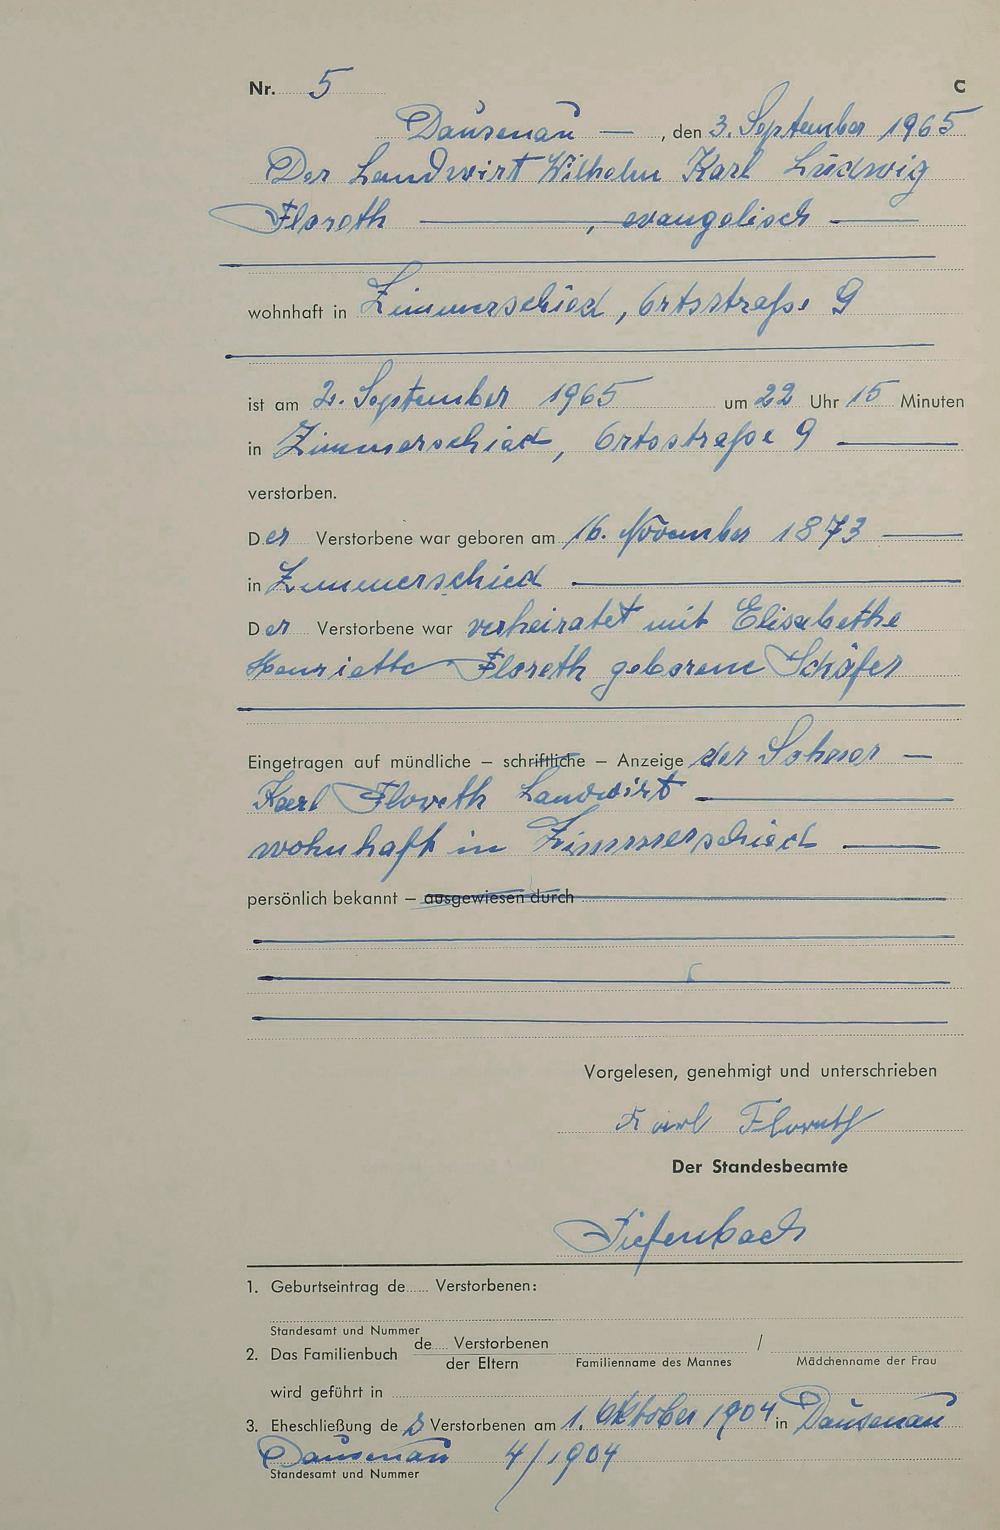 Nr. 5 C
Dausenau — , den 3. September 1965
Der Landwirt Wilhelm Karl Ludwig
Floreth — , evangelisch —
wohnhaft in Zimmerschied, Ortsstraße 9
ist am 2. September 1965 um 22 Uhr 15 Minuten
in Zimmerschied, Ortsstraße 9 —
verstorben.
Der Verstorbene war geboren am 16. November 1873 —
in Zimmerschied —
Der Verstorbene war verheiratet mit Elisabethe
Henriette Floreth geborene Schäfer
Eingetragen auf mündliche – schriftliche – Anzeige des Sohnes —
Karl Floreth Landwirt —
wohnhaft in Zimmerschied —
persönlich bekannt – ausgewiesen durch
Vorgelesen, genehmigt und unterschrieben
Karl Floreth
Der Standesbeamte
Tiefenbach
1. Geburtseintrag de...... Verstorbenen:
Standesamt und Nummer
2. Das Familienbuch de.... Verstorbenen /
der Eltern Familienname des Mannes Mädchenname der Frau
wird geführt in
3. Eheschließung des Verstorbenen am 1. Oktober 1904 in Dausenau
Dausenau 4/1904
Standesamt und Nummer